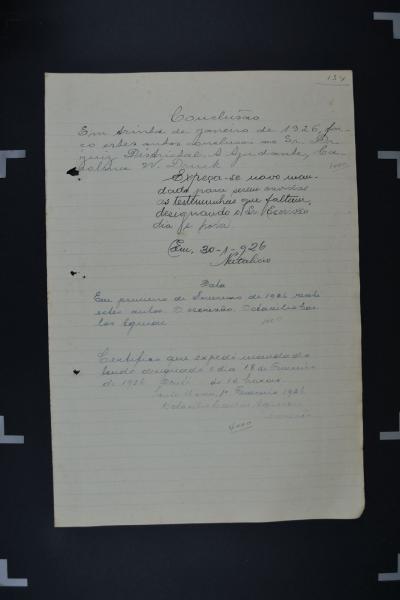 134
Conclusão
Em trinta de janeiro de 1926, fa-
ço estes autos conclusos ao Sr. Dr.
Juiz Districtal. O Ajudante, Ca-
W. Druck
Expeça-se novo man-
dado para serem ouvidas
as testimunhas que faltam,
designando o Sr. Escrivão
dia p
Em, 30-1-926
Natalicio
Data
Em primeiro de Fevereiro de 1926 recebi
estes autos. O escrivão, Octacilio Car-
los Aguiar
Certifico que expedi mandado
tendo designado o dia 18 de Fevereiro
de 1926 as 14 horas.
1º Fevereiro 1926
Octacilio Carlos Aguiar
escrivão